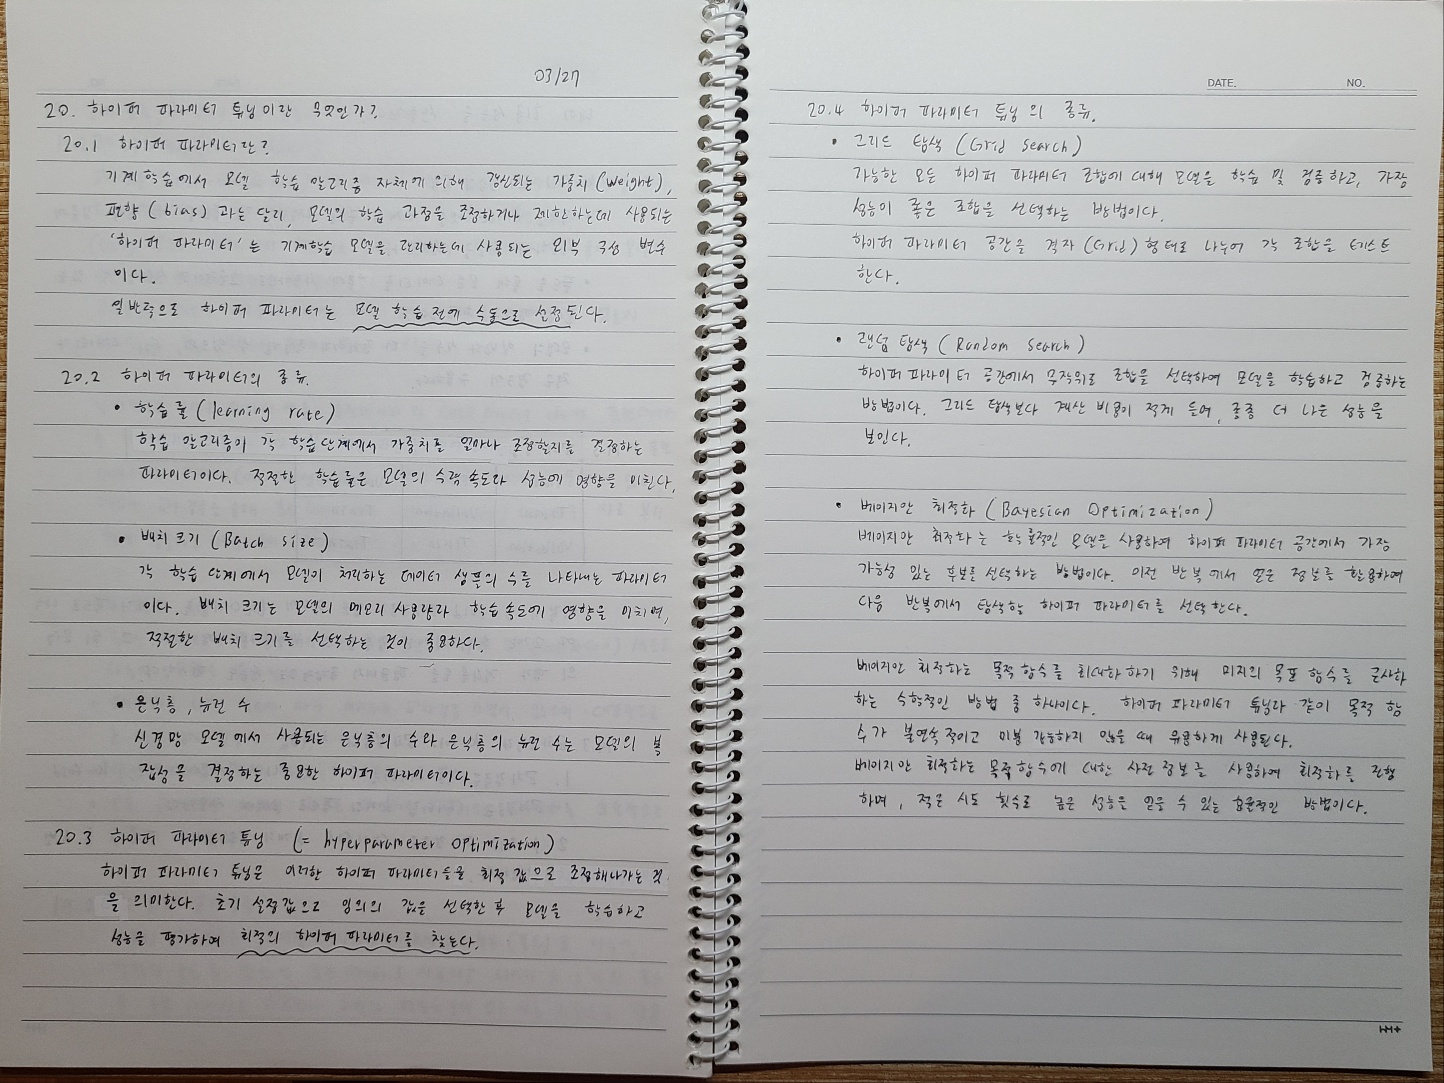 03/27
20. 하이퍼 파라미터 튜닝이란 무엇인가?
20.1 하이퍼 파라미터란?
기계 학습에서 모델 학습 알고리즘 자체에 의해 갱신되는 가중치(weight),
편향(bias)과는 달리, 모델의 학습 과정을 조정하거나 제한하는데 사용되는
'하이퍼 파라미터'는 기계학습 모델을 관리하는데 사용되는 외부 구성 변수
이다.
일반적으로 하이퍼 파라미터는 모델 학습 전에 수동으로 설정된다.
20.2 하이퍼 파라미터의 종류.
• 학습률(learning rate)
학습 알고리즘이 각 학습단계에서 가중치를 얼마나 조정할지를 결정하는
파라미터이다. 적절한 학습률은 모델의 수렴 속도와 성능에 영향을 미친다.
• 배치 크기 (Batch size)
각 학습 단계에서 모델이 처리하는 데이터 샘플의 수를 나타내는 파라미터
이다. 배치 크기는 모델의 메모리 사용량과 학습 속도에 영향을 미치며,
적절한 배치 크기를 선택하는 것이 중요하다.
• 은닉층, 뉴런 수
신경망 모델에서 사용되는 은닉층의 수와 은닉층의 뉴런 수는 모델의 복
잡성을 결정하는 중요한 하이퍼 파라미터이다.
20.3 하이퍼 파라미터 튜닝 (= hyperparameter optimization)
하이퍼 파라미터 튜닝은 이러한 하이퍼 파라미터들을 최적 값으로 조정해나가는 것
을 의미한다. 초기 설정값으로 임의의 값을 선택한 후 모델을 학습하고
성능을 평가하여 최적의 하이퍼 파라미터를 찾는다.
DATE. NO.
20.4 하이퍼 파라미터 튜닝의 종류.
• 그리드 탐색 (Grid search)
가능한 모든 하이퍼 파라미터 조합에 대해 모델을 학습 및 검증하고, 가장
성능이 좋은 조합을 선택하는 방법이다.
하이퍼 파라미터 공간을 격자(Grid)형태로 나누어 각 조합을 테스트
한다.
• 랜덤 탐색 (Random search)
하이퍼 파라미터 공간에서 무작위로 조합을 선택하여 모델을 학습하고 검증하는
방법이다. 그리드 탐색보다 계산 비용이 적게 들며, 종종 더 나은 성능을
보인다.
• 베이지안 최적화 (Bayesian Optimization)
베이지안 최적화는 확률적인 모델을 사용하여 하이퍼 파라미터 공간에서 가장
가능성 있는 후보를 선택하는 방법이다. 이전 반복에서 얻은 정보를 활용하여
다음 반복에서 탐색할 하이퍼 파라미터를 선택한다.
베이지안 최적화는 목적 함수를 최대화하기 위해 미지의 목표 함수를 근사화
하는 수학적인 방법 중 하나이다. 하이퍼 파라미터 튜닝과 같이 목적 함
수가 불연속적이고 미분 가능하지 않을 때 유용하게 사용된다.
베이지안 최적화는 목적 함수에 대한 사전 정보를 사용하여 최적화를 진행
하며, 적은 시도 횟수로 높은 성능을 얻을 수 있는 효율적인 방법이다.